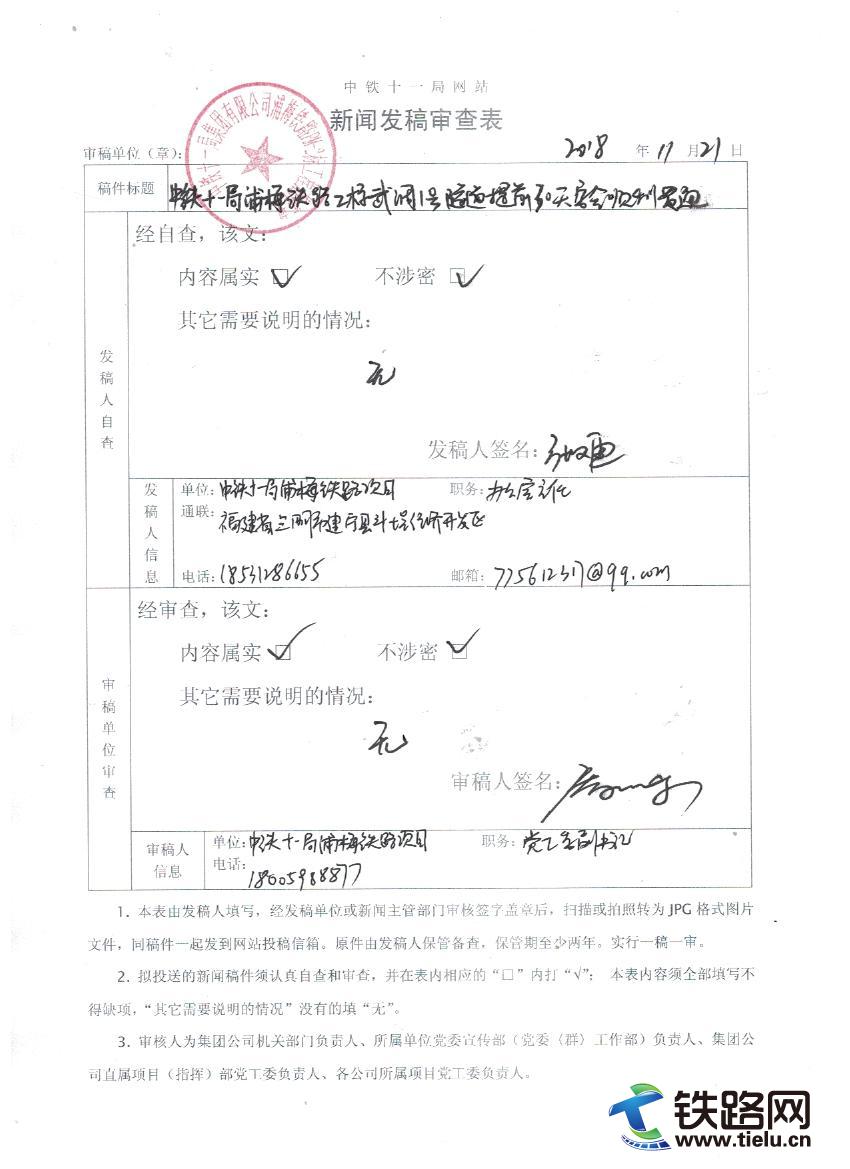 中铁十一局网站
新闻发稿审查表
审稿单位（章）： 2018 年 11 月 21 日
稿件标题 中铁十一局浦梅铁路工标武调1号隧道提前30天安全顺利贯通
经自查，该文：
内容属实 □√ 不涉密 □√
其它需要说明的情况：
无
发稿人自查
发稿人签名：
发稿人信息
单位：中铁十一局浦梅铁路项目 职务：办公室主任
通联：福建省三明市建宁县斗埕经济开发区
电话：18531286655 邮箱：775612317@qq.com
经审查，该文：
内容属实 □√ 不涉密 □√
其它需要说明的情况：
无
审稿单位审查
审稿人签名：
审稿人信息
单位：中铁十一局浦梅铁路项目 职务：党工委副书记
电话：18005988877
1. 本表由发稿人填写，经发稿单位或新闻主管部门审核签字盖章后，扫描或拍照转为 JPG 格式图片
文件，同稿件一起发到网站投稿信箱。原件由发稿人保管备查，保管期至少两年。实行一稿一审。
2. 拟投送的新闻稿件须认真自查和审查，并在表内相应的“□”内打“√”； 本表内容须全部填写不
得缺项，“其它需要说明的情况”没有的填“无”。
3. 审核人为集团公司机关部门负责人、所属单位党委宣传部（党委（群）工作部）负责人、集团公
司直属项目（指挥）部党工委负责人、各公司所属项目党工委负责人。
铁路网
www.tielu.cn